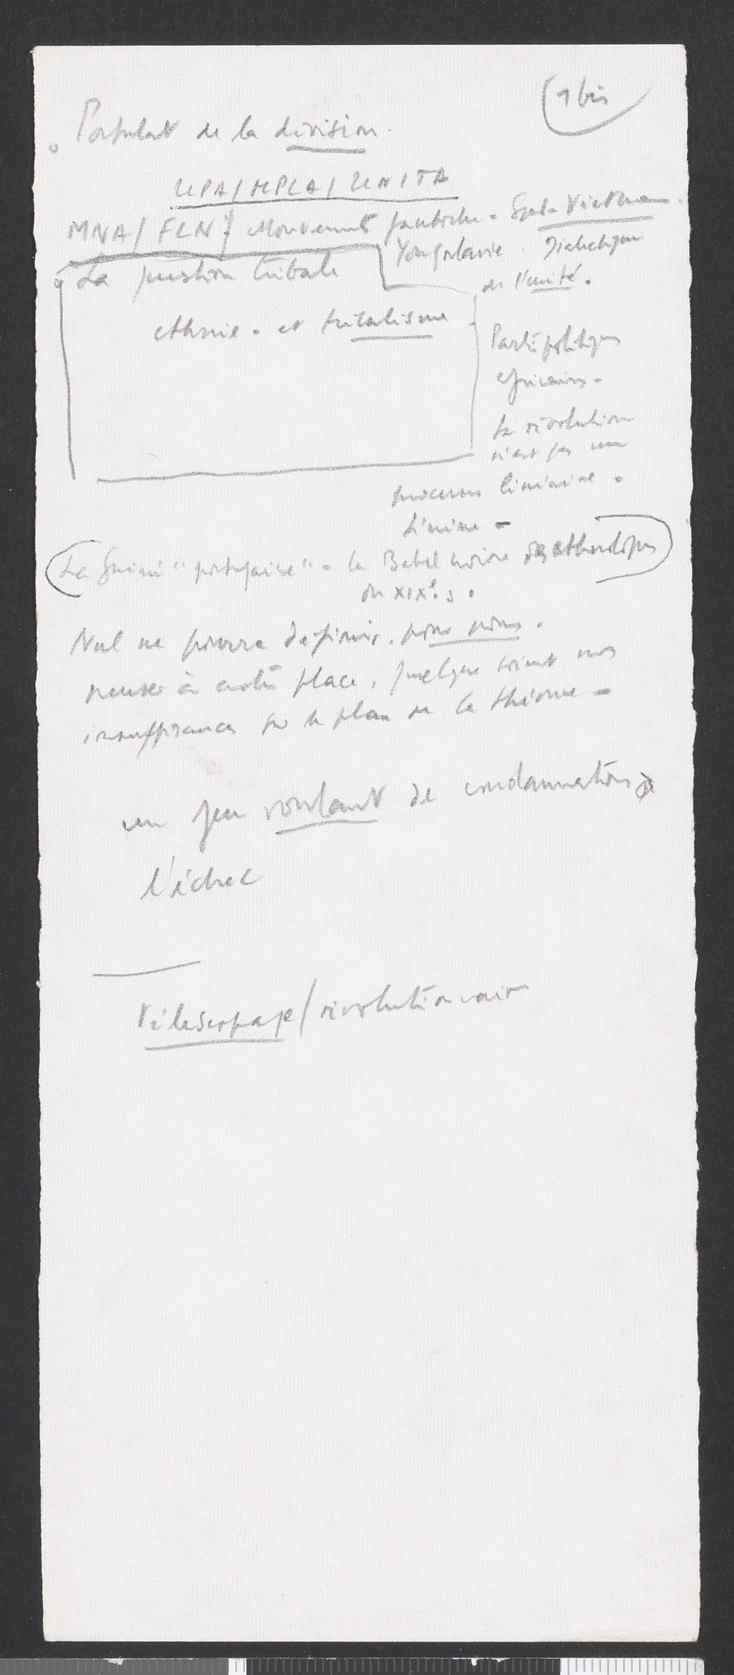 9 bis
Postulat de la division.
UPA/MPLA/UNITA
MNA/FLN/ Mouvements fantoche - Sud-Vietnam.
Yougoslavie. Dialectique
de l'unité.
La question tribale
ethnie - et tribalisme
Partis politiques
africains -
La révolution
n'est pas un
processus linéaire.
La Guinée "portugaise" - la Babel noire des ethnologues
du XIXe s.
Nul ne pourra définir, pour nous,
penser à notre place, quelque soient nos
insuffisances sur le plan de la théorie -
un feu roulant de condamnations
l'échec
Télescopage/révolutionnaire